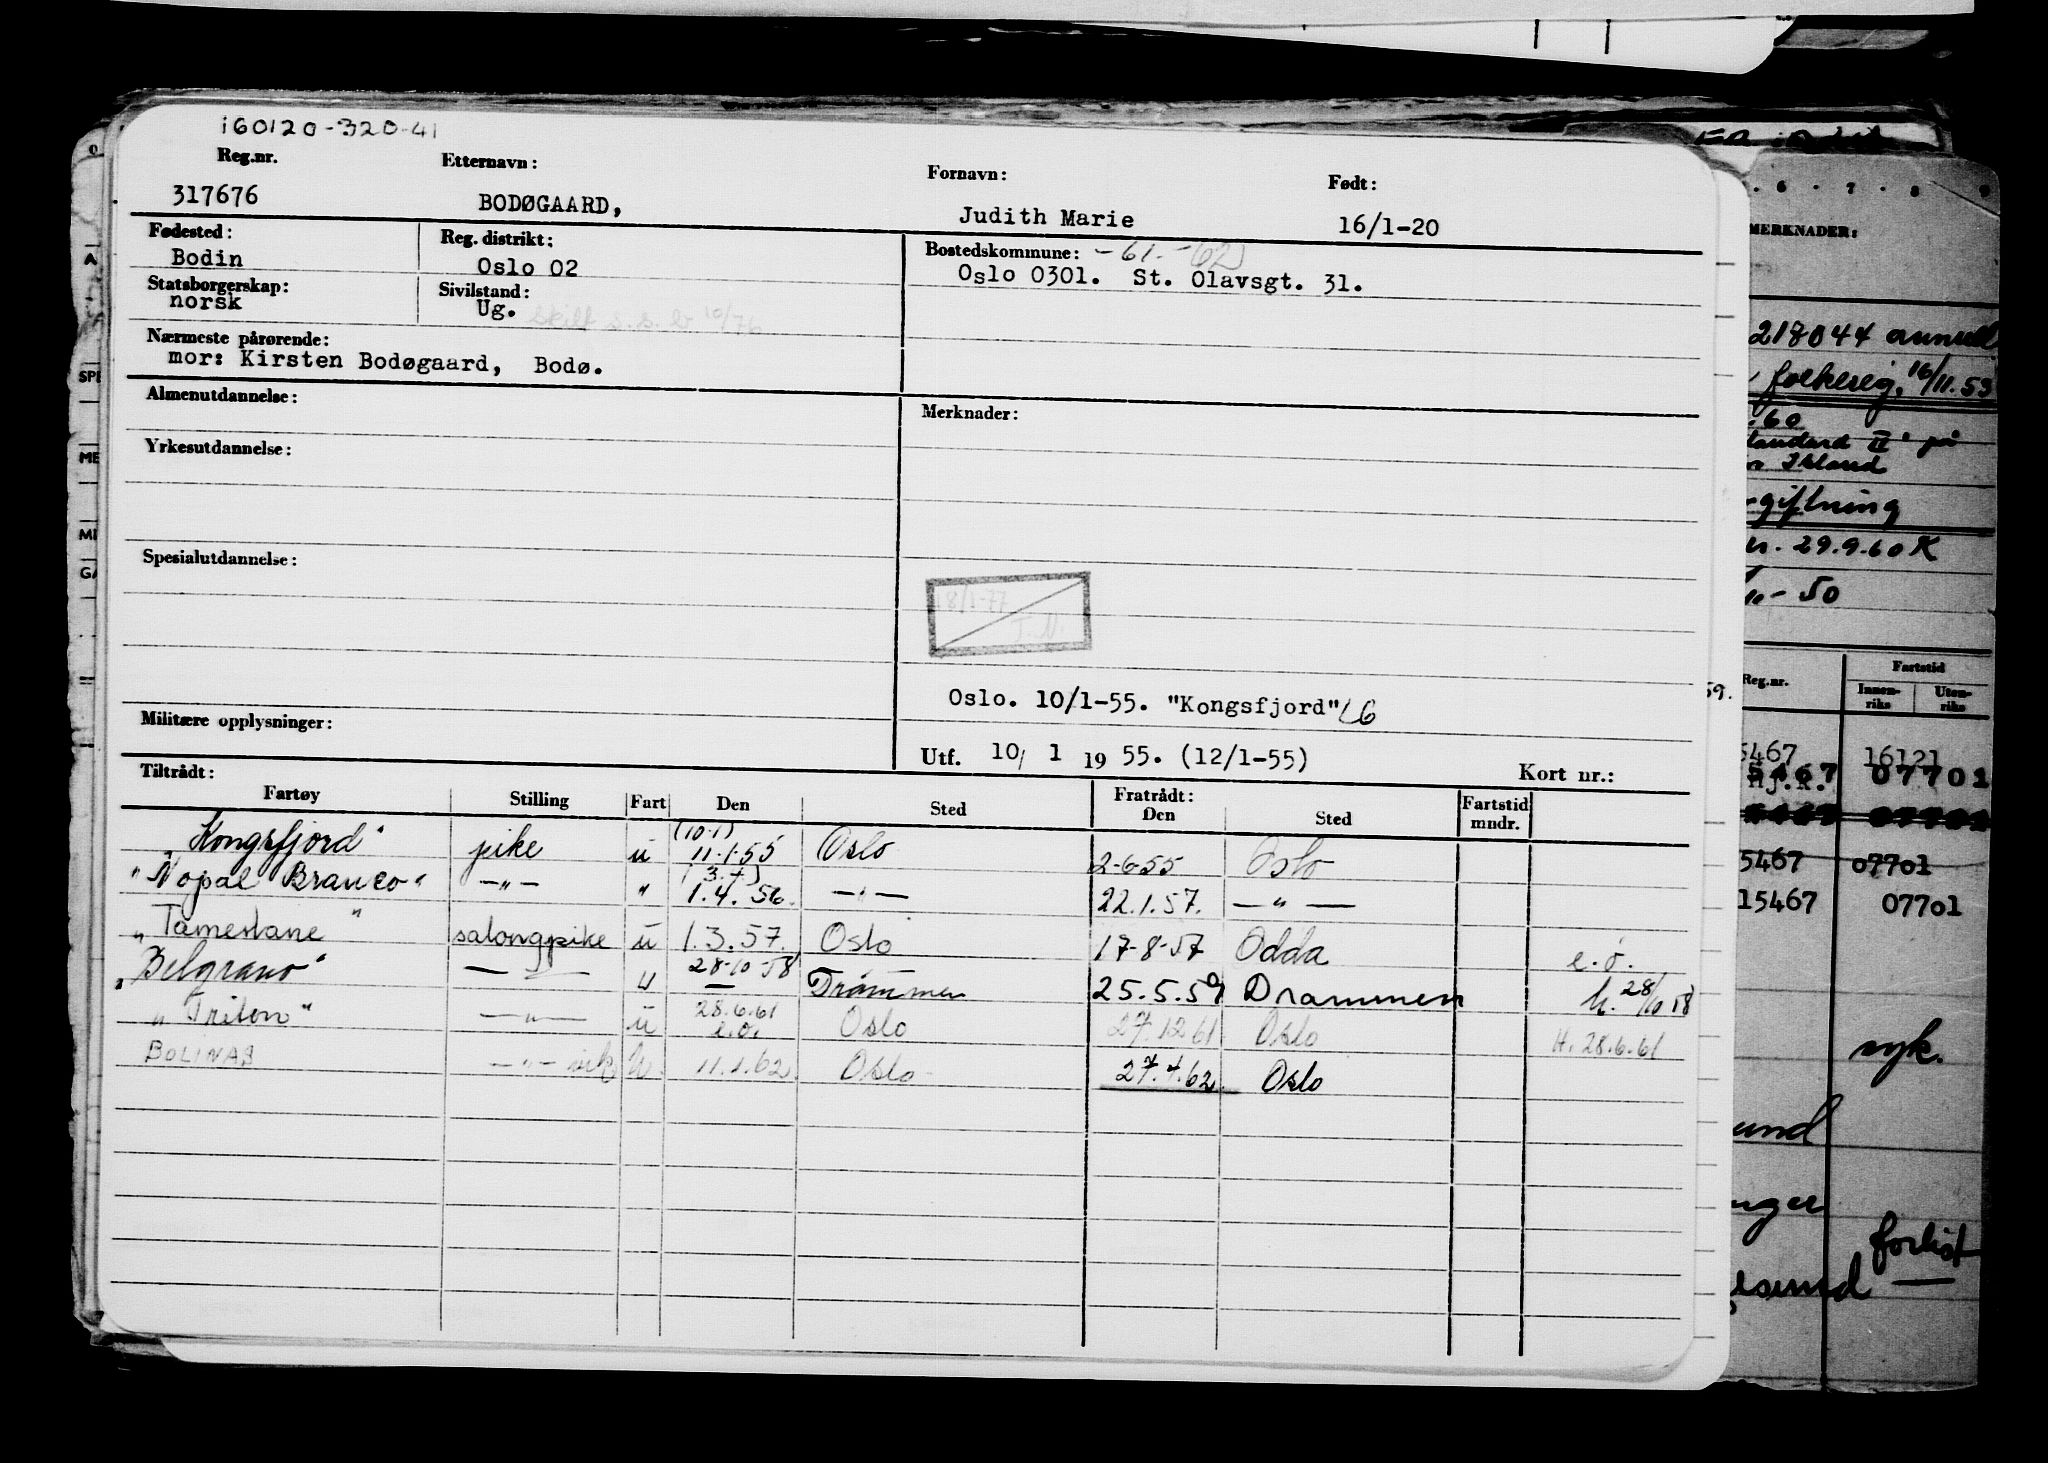 160120-320-41
Reg.nr. Etternavn: Fornavn: Født:
317676 BODØGAARD, Judith Marie 16/1-20
Fødested: Reg. distrikt: Bostedskommune: -61. -62
Bodin Oslo 02 Oslo 0301. St. Olavsgt. 31.
Statsborgerskap: Sivilstand:
norsk Ug. skilt s.s.b 10/76
Nærmeste pårørende:
mor: Kirsten Bodøgaard, Bodø.
Almenutdannelse: Merknader:
Yrkesutdannelse:
Spesialutdannelse:
18/1-77
T.N.
Oslo. 10/1-55. "Kongsfjord"
Militære opplysninger:
Utf. 10/ 1 1955. (12/1-55) Kort nr.:
Tiltrådt: Fratrådt:
Fartøy Stilling Fart Den Sted Den Sted Fartstid mndr.
"Kongsfjord" pike u (10-1) 11.1.55 Oslo 2-6-55 Oslo
"Nopal Branco" —"— " (3.4) 1.4.56. —"— 22.1.57. —"—
"Tamerlane" salongpike u 1.3.57. Oslo 17-8-57 Odda e.o.
"Belgrano" —"— u 28-10-58 Drammen 25.5.59 Drammen h. 28/10 58
"Triton" —"— u 28.6.61 e.o. Oslo 27.12.61 Oslo H. 28.6.61
BOLINAS —"— 11.1.62. Oslo 27.4.62. Oslo
6 . 7 . 8 . 9
MERKNADER:
218044
folkereg. 16/11.53
.60
II
Island
29.9.60 K
- 50
59.
Reg.nr. Fartstid
Innenriks Utenriks
5467 16121
5467 07701
Hj.k.
5467 07701
15467 07701
syk.
und
forlist